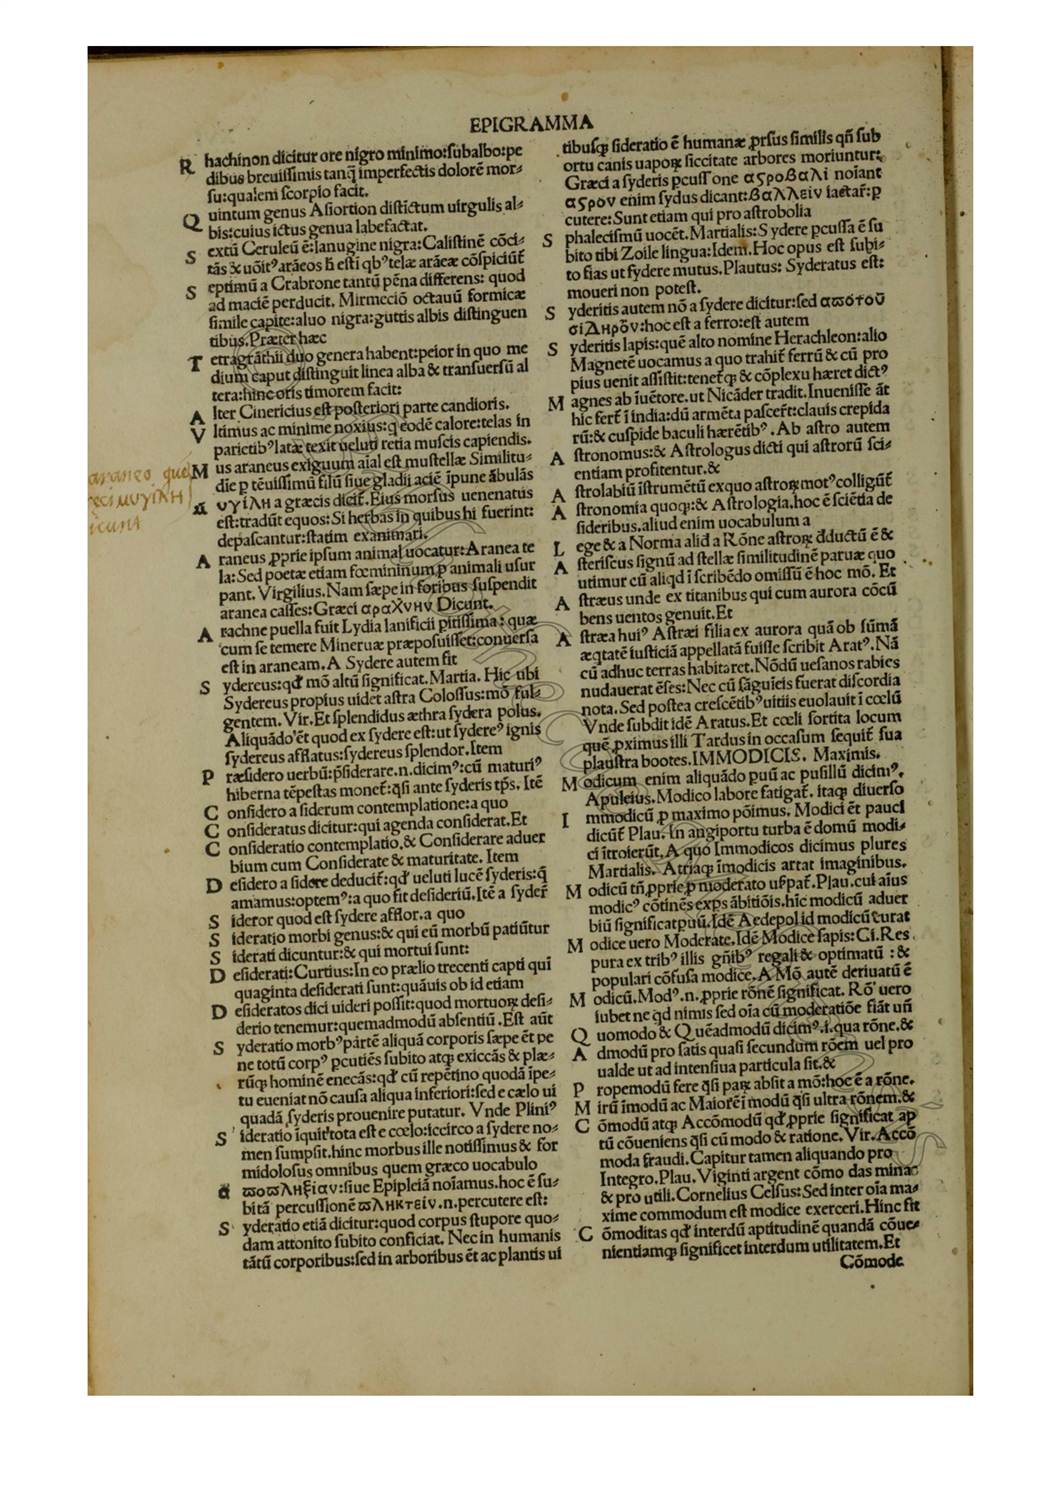 EPIGRAMMA
R hachinon dicitur ore nigro minimo:ſubalbo:pe
dibus breuiſſimis tanq̃ imperfectis dolorē mor⸗
ſu:qualem ſcorpio facit.
Q uintum genus Aſiortion diſtictum uirgulis al⸗
bis:cuius ictus genua labefactat.
S extū Ceruleū ē:lanugine nigra:Caliſtinē cōci⸗
tās & uōitꝰ arāeos h̄ eſti qbꝰ telæ arāeæ cōſpiciūt̃
S eptimū a Crabrone tantū pēna differens: quod
ad maciē perducit. Mirmeciō octauū formicæ
ſimile capite:aluo nigra:guttis albis diſtinguen
tibus.Præter hæc
T etragnāthii duo genera habent:peior in quo me
dium caput diſtinguit linea alba & tranſuerſū al
tera:hinc oris timorem facit:
A lter Cinericius eſt poſteriori parte candioris.
V ltimus ac minime noxius:q eodē calore:telas in
parietibꝰ latæ texit ueluti retia muſcis capiendis.
araneo que M us araneus exiguum aīal eſt muſtellæ Similitu⸗
die p tēuiſſimū filū ſiue gladii aciē īpune ābulās
μυγίλη υγίλη a græcis dicit̃.Eius morſus uenenatus
icunt eſt:tradūt equos:Si herbas in quibus hi fuerint:
depaſcantur:ſtatim exanimari.
A raneus ꝓprie ipſum animal uocatur:Aranea te
la:Sed poetæ etiam fœmininum p animali uſur
pant. Virgilius. Nam ſæpe in foribus ſuſpendit
aranea caſſes:Græci αραχνην Dicunt.
A rachne puella fuit Lydia lanificii pitiſſima: quæ
cum ſe temere Mineruæ præpoſuiſſet:conuerſa
eſt in araneam.A Sydere autem fit
S ydereus:qđ mō altū ſignificat.Martia. Hic ubi
Sydereus propius uidet aſtra Coloſſus:mō ful⸗
gentem. Vir.Et ſplendidus æthra ſydera polus.
Aliquādo ēt quod ex ſydere eſt:ut ſydereꝰ ignis
ſydereus afflatus:ſydereus ſplendor.Item
P ræſidero uerbū:p̄ſiderare.n.dicimꝰ:cū maturiꝰ
hiberna tēpeſtas monet̃:q̄ſi ante ſyderis tp̄s. Itē
C onſidero a ſiderum contemplatione:a quo
C onſideratus dicitur:qui agenda conſiderat.Et
C onſideratio contemplatio.& Conſiderare aduer
bium cum Conſiderate & maturitate. Item
D eſidero a ſidere deducit̃:qđ ueluti lucē ſyderis:q̄
amamus:optemꝰ:a quo fit deſideriū.Itē a ſyder̃
S ideror quod eſt ſydere afflor.a quo
S ideratio morbi genus:& qui eū morbū patiūtur
S iderati dicuntur:& qui mortui ſunt:
D eſiderati:Curtius:In eo prælio trecenti capti qui
quaginta deſiderati ſunt:quāuis ob id etiam
D eſideratos dici uideri poſſit:quod mortuoꝝ deſi⸗
derio tenemur:quemadmodū abſentiū.Eſt aūt
S yderatio morbꝰ partē aliquā corporis ſæpe ēt pe
ne totū corpꝰ ꝑcutiēs ſubito atqꝫ exiccās & plæ⸗
rūqꝫ hominē enecās:qđ cū repētino quodā īpe⸗
tu eueniat nō cauſa aliqua inferiori:ſed e cælo ui
quadā ſyderis prouenire putatur. Vnde Pliniꝰ
S ideratio īquit tota eſt e cœlo:iccirco a ſydere no⸗
men ſumpſit.hinc morbus ille notiſſimus & for
midoloſus omnibus quem græco uocabulo
ά ϖοϖληξίαν:ſiue Epipleiā noīamus.hoc ē ſu⸗
bitā percuſſionē ϖληκτειν.n.percutere eſt:
S yderatio etiā dicitur:quod corpus ſtupore quo⸗
dam attonito ſubito conficiat. Nec in humanis
tātū corporibus:ſed in arboribus ēt ac plantis ui
tibuſqꝫ ſideratio ē humanæ ꝓrſus ſimilis qn̄ ſub
ortu canis uapoꝝ ſiccitate arbores moriuntur:
Græci a ſyderis pcuſſione αϛροβαλι noīant
αϛρον enim ſydus dicant:βαλλειν iactar̃:ꝑ
cutere:Sunt etiam qui pro aſtrobolia
S phaleciſmū uocēt.Martialis:Sydere ꝑcuſſa ē ſu
bito tibi Zoile lingua:Idem.Hoc opus eſt ſubi⸗
to fias ut ſydere mutus.Plautus: Syderatus eſt:
moueri non poteſt.
S yderitis autem nō a ſydere dicitur:ſed αϖότοῦ
σιληρον:hoc eſt a ferro:eſt autem
S yderitis lapis:quē alto nomine Herachleon:alio
Magnetē uocamus a quo trahit̃ ferrū & cū pro
pius uenit aſſiſtit:tenet̃qꝫ & cōplexu hæret dictꝰ
M agnes ab iuētore.ut Nicāder tradit.Inueniſſe āt
hic fert̃ ī india:dū armēta paſcer̃t:clauis crepida
rū:& cuſpide baculi hærētibꝰ. Ab aſtro autem
A ſtronomus:& Aſtrologus dicti qui aſtrorū ſci⸗
entiam profitentur.&
A ſtrolabiū īſtrumētū exquo aſtroꝝ motꝰ colligūt̃
A ſtronomia quoqꝫ:& Aſtrologia.hoc ē ſciētia de
ſideribus.aliud enim uocabulum a
L ege & a Norma alid a Rōne aſtroꝝ đductū ē &
A ſteriſcus ſignū ad ſtellæ ſimilitudinē paruæ quo
utimur cū aliqd ī ſcribēdo omiſſū ē hoc mō. Et
A ſtræus unde ex titanibus qui cum aurora cōcū
bens uentos genuit.Et
A ſtræa huiꝰ Aſtræi filia ex aurora quā ob ſūmā
æqtatē iuſticiā appellatā fuiſſe ſcribit Aratꝰ. Nā
cū adhuc terras habitaret. Nōdū ueſanos rabies
nudauerat ēſes:Nec cū ſāguīeis fuerat diſcordia
nota. Sed poſtea creſcētibꝰ uitiis euolauit ī cœlū
Vnde ſubdit idē Aratus.Et cœli ſortita locum
quē ꝓximus illi Tardus in occaſum ſequit̃ ſua
plauſtra bootes.IMMODICIS. Maximis.
M odicum enim aliquādo ꝑuū ac puſillū dicimꝰ.
Apuleius.Modico labore fatigat̃. itaqꝫ diuerſo
I mmodicū ꝓ maximo pōimus. Modici ēt pauci
dicūt̃ Plau. In angiportu turba ē domū modi⸗
ci ītroierūt.A quo Immodicos dicimus plures
Martialis. Atriaqꝫ īmodicis artat imaginibus.
M odicū tn̄ ꝓprie ꝓ moderato uſꝑat̃.Plau.cui aīus
modicꝰ cōtinēs exꝑs ābitiōis.hic modicū aduer
biū ſignificat ꝑuū.Idē Aedepol id modicū curat
M odice uero Moderate.Idē Modice ſapis:Ci.Res
pura ex tribꝰ illis gn̄ibꝰ regali & optimatū : &
populari cōfuſa modice.A Mō autē deriuatū ē
M odicū.Modꝰ.n.ꝓprie rōnē ſignificat. Rō uero
iubet ne qd nimis ſed oīa cū moderatiōe fiāt un̄
Q uomodo & Quēadmodū dicimꝰ.i.qua rōne.&
A dmodū pro ſatis quaſi ſecundum rōem uel pro
ualde ut ad intenſiua particula ſit.&
P ropemodū fere q̄ſi paꝝ abſit a mō:hoc ē a rōne.
M irū īmodū ac Maiorē ī modū q̄ſi ultra rōnem.&
C ōmodū atqꝫ Accōmodū qđ ꝓprie ſignificat ap
tū cōueniens q̄ſi cū modo & ratione. Vir.Accō
moda fraudi.Capitur tamen aliquando pro
Integro.Plau. Viginti argent cōmo das minas
& pro utili.Cornelius Celſus:Sed inter oīa ma⸗
xime commodum eſt modice exerceri.Hinc fit
C ōmoditas qđ interdū aptitudinē quandā cōue⸗
nientiamqꝫ ſignificet interdum utilitatem.Et
Cōmode